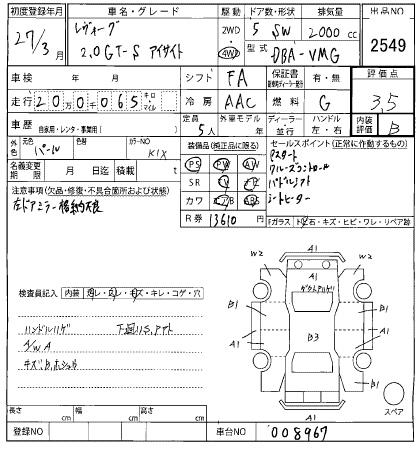 初度登録年月 車名・グレード 駆動 ドア数・形状 排気量 出品NO
27/3月 レヴォーグ 2WD 4WD 5 SW 2000 cc 2549
2.0GT-S アイサイト 型式 DBA-VMG
車検 年 月 シフト FA 保証書 有・無 評価点
走行 20万0千065 キロ マイル 冷房 AAC 燃料 G 3.5
車歴 自家用・レンタ・事業用( ) 定員 5人 外車モデル 年 ディーラー 並行 ハンドル 左・右 内装評価 B
外色 元色 パール 色替 カラーNO K1X 装備品(純正品に限る) セールスポイント(正常に作動するもの)
名義変更期限 月 日迄 積載 t PS PW AW
Pスタート
クルーズコントロール
SR
パドルシフト
注意事項(欠品・修復・不具合箇所および状態) カワ エアB ABS シートヒーター
左ドアミラー格納不良 R券 13610 Fガラス トビ石・キズ・ヒビ・ワレ・リペア跡
検査員記入 内装
ハンドルハゲ 下廻りS,アト
A/W A
キズ、B、ホシュウ
A1
W2 W2
B1 B1
A1 B3 A1
B1
A1
スペア
長さ cm 幅 cm 高さ cm
登録NO 車台NO 008967